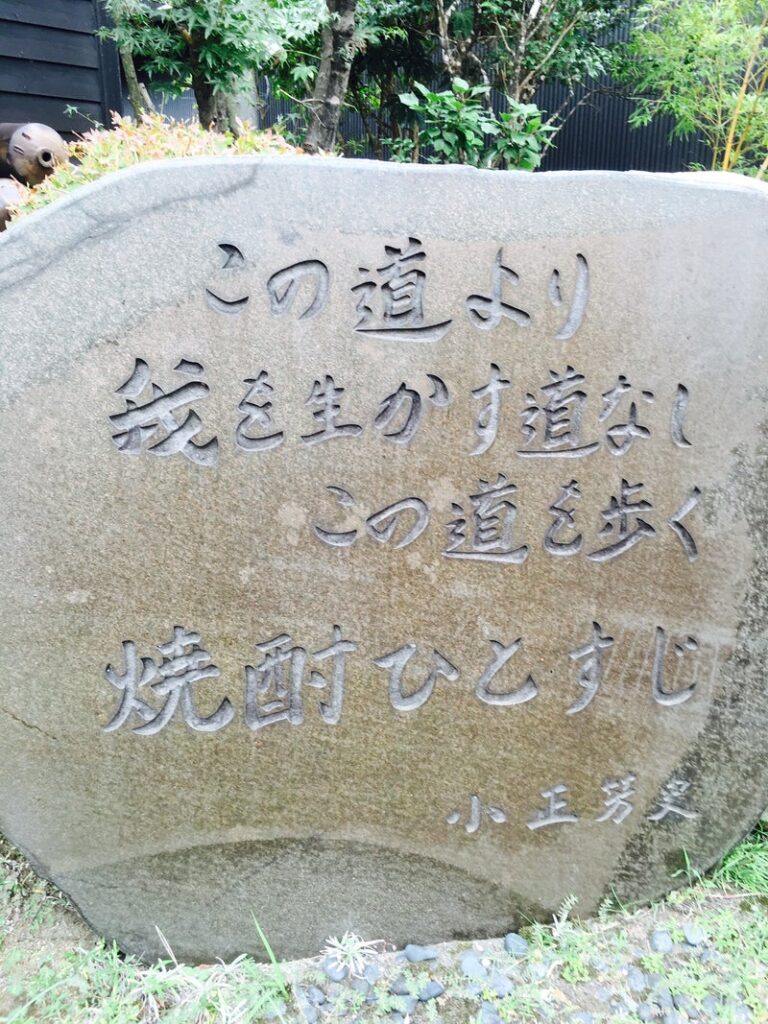 この道より
我を生かす道なし
この道を歩く
焼酎ひとすじ
小正芳史